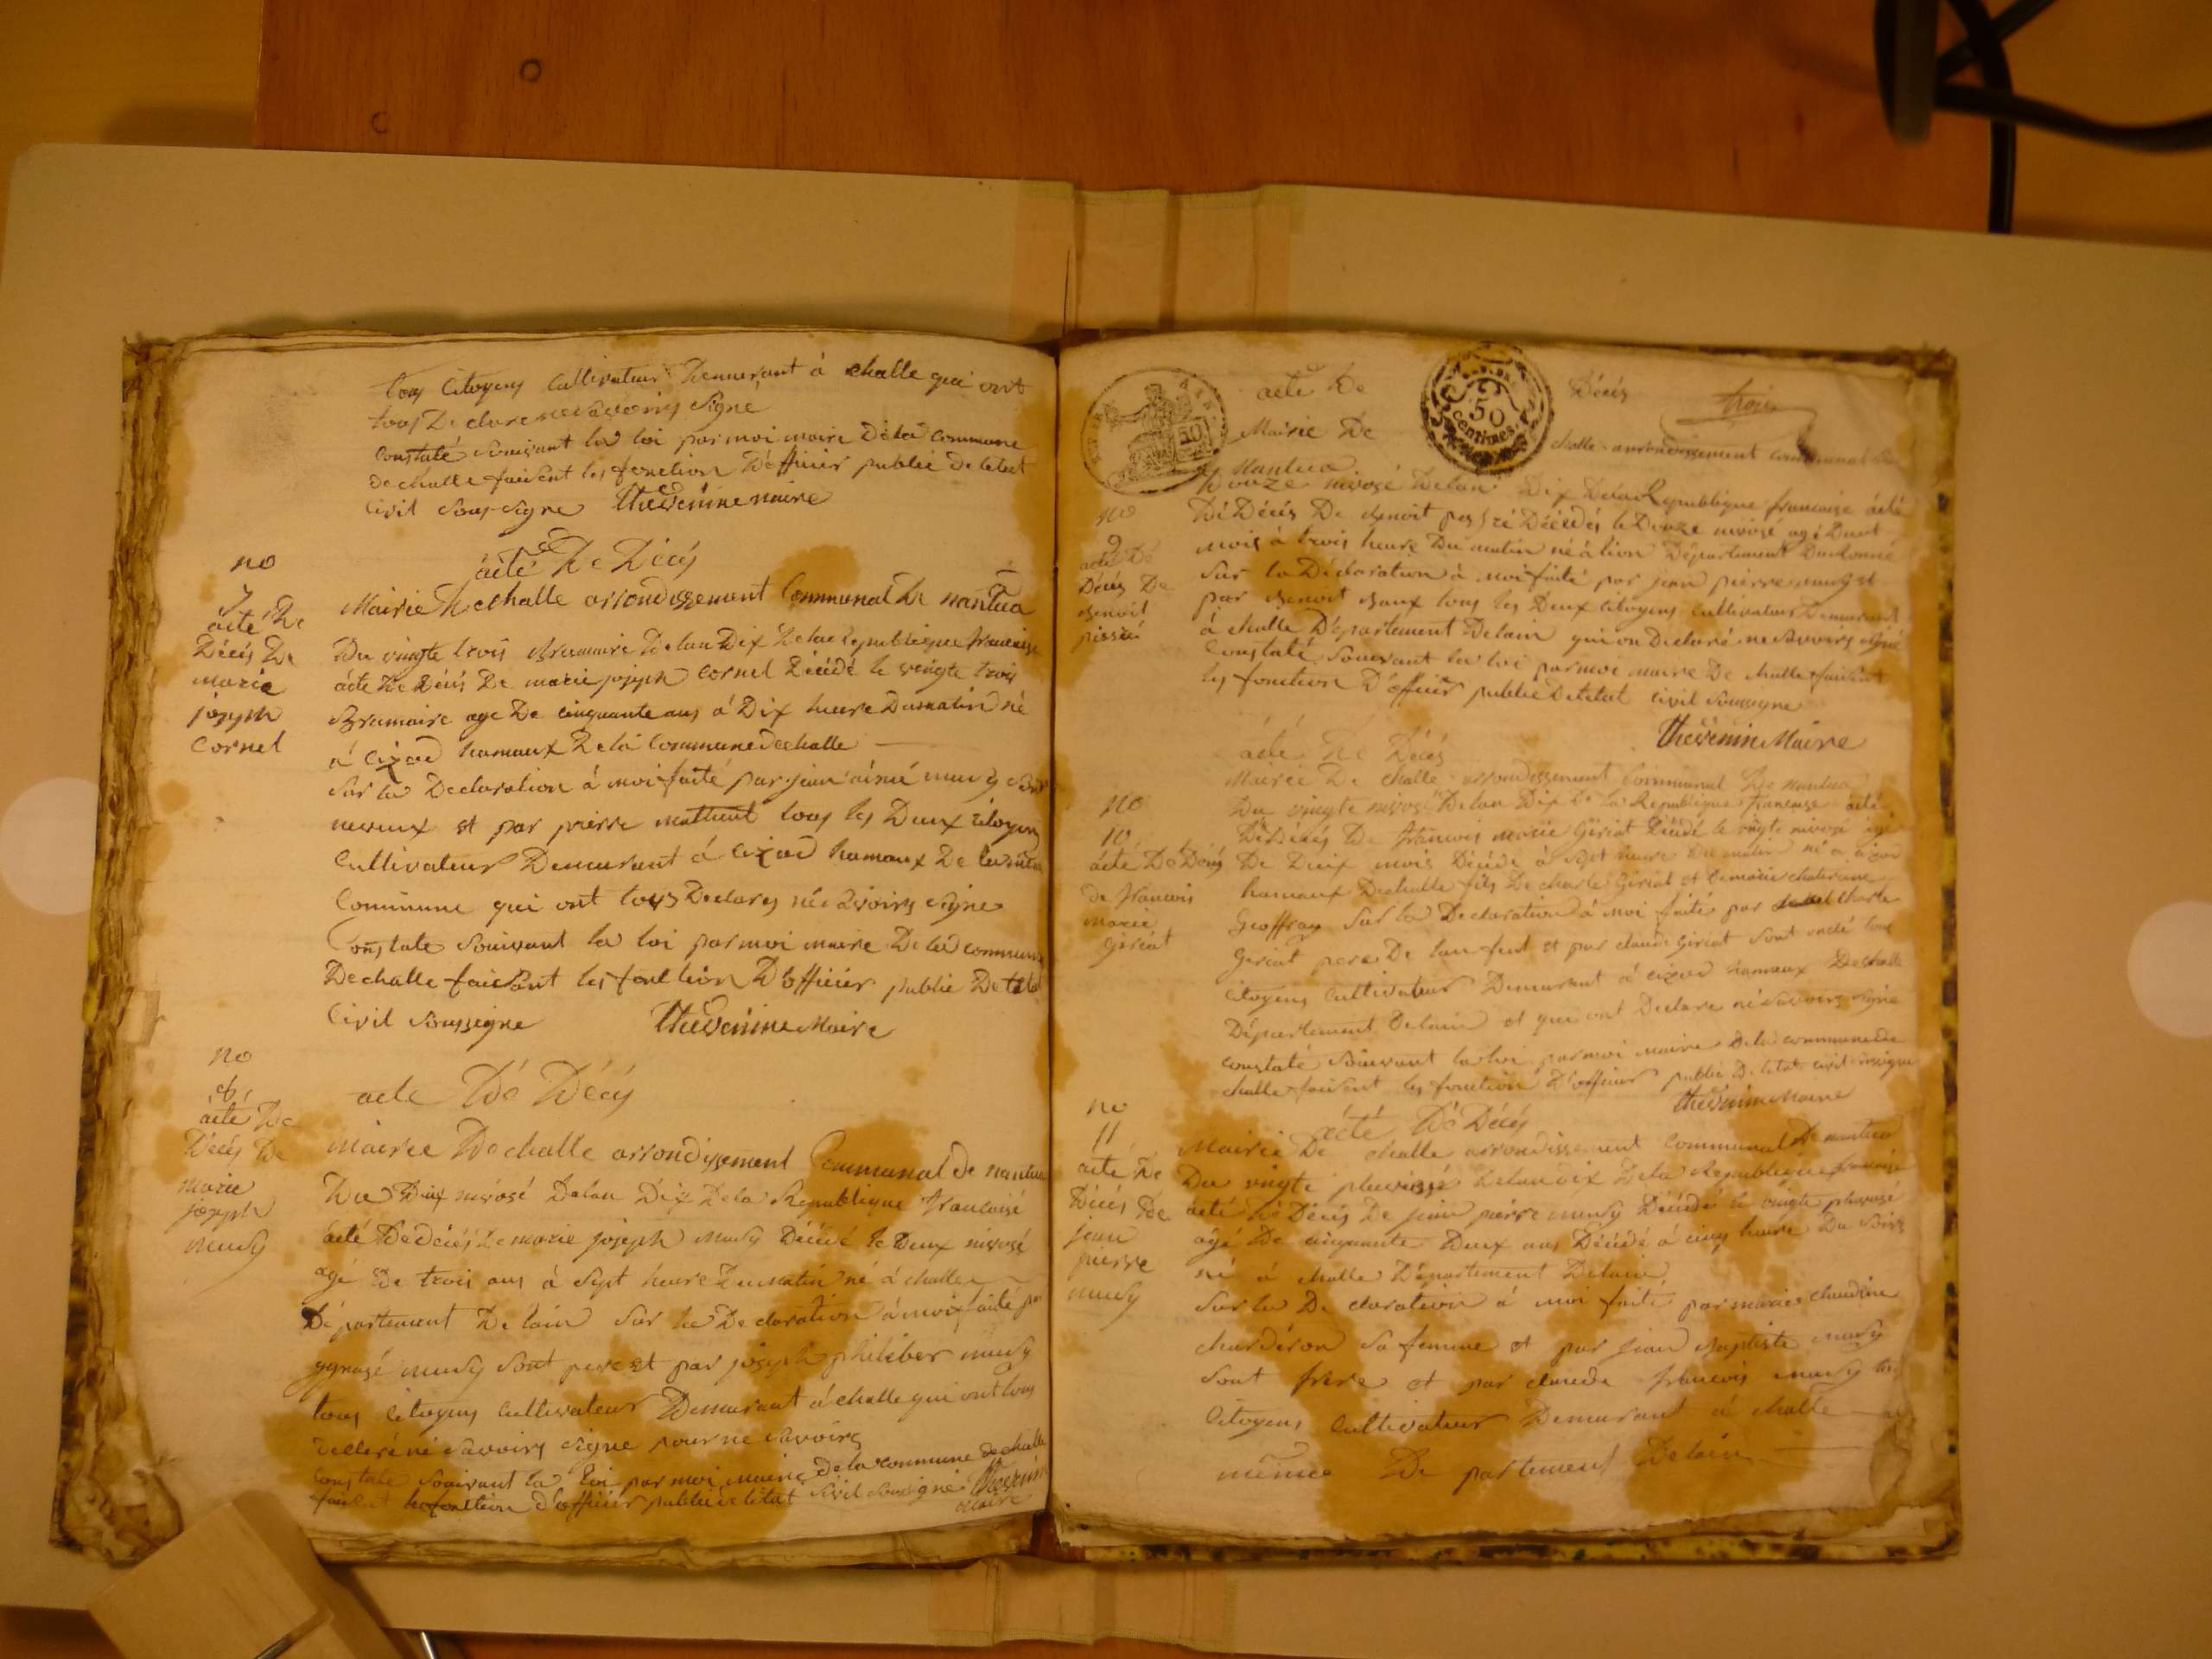 tous Citoyens Cultivateur Demeurant á challe qui ont
tous Declare ne Savoirs Signe
Constaté Souivant la loi par moi maire De la Commune
De challe faisent les fonction D'officier public De letat
Civil Sous-Signe Thevenin maire
no
7
acte De
Décés De
marie
joseph
Cornel
acte De Décés
Mairie De challe arrondissement Communal De nantua
Du vingte trois Brumaire De lan Dix De la Republique francaise
acte De Décés De marie joseph Cornel Décédé le vingte trois
Brumaire age De cinquante ans á Dix heure Du matin né
á Cizod hamaux De la Commune De challe
Sur la Declaration á moi faité par jean aimé musy
neveux et par pierre tous les Deux Citoyens
Cultivateur Demurant á Cizod hamaux De la même
Commune qui ont tous Declares né Savoirs Signe
Constate Souivant la loi par moi maire De la commune
De challe faisont les fonction D'officier public De letat
Civil Soussigne Thevenin Maire
no
8
acté De
Décés De
marie
joseph
musy
acte Dé Décés
Mairie De challe arrondissement Communal de nantua
Du Deux nivosé De lan Dix De la Republique francoisé
acté De décés De marie joseph musy Décédé le Deux nivosé
agé De trois ans á Sept heure Du matin né á challe
Département De lain Sur la Declaration á moi faité par
musy Sont pere et par joseph philiber musy
tous Citoyens Cultivateur Demurant á challe qui ont tous
Declaré né Savoirs Signe pour ne Savoirs
Constate Souivant la loi par moi maire de la commune de challe
faisent les fonction d'officier public De letat Civil Soussigné Thevenin
Maire
acte De Décés trois
50
centimes
Mairie De challe arrondissement Communal de
nantua
Douze nivosé De lan Dix De la Republique francaise acté
no
9
acte De
Décés De
Benoit
Dé Décés De Benoit Décédés le Douze nivosé agé Dunt
mois á trois heure Du matin né á lion Département Du Ronne
Sur la Déclaration á moi faité par jean pierre musy et
par Benoit tous les Deux Citoyens Cultivateur Demurant
á challe Département De lain qui on Declaré ne Savoirs Signé
Constaté Souivant la loi par moi maire De challe faisent
les fonction D'officier public De letat Civil Soussigne
Thevenin Maire
acté De Décés
Mairie De challe arrondissement Communal De nantua
no
10
acté De Décés
de francois
marie
Geriat
Du vingte nivosé De lan Dix De la Republique francaise acté
De Décés De francois marie Geriat Décédé le vingte nivosé agé
De Deux mois Décédé á Sept heure Du matin né a Cizod
hamaux De challe fils De charle Geriat et De marie chaterine
Geoffray Sur la Declaration á moi faité par charle
Geriat pere De lan fent et par claude Geriat Sont onclé tous
Citoyens Cultivateur Demurant á Cizod hamaux De challe
Département De lain et qui ont Declare né Savoirs Signe
constaté Souivant la loi par moi maire De la commune de
challe faisent les fonction D'officier public De letat civil Soussigne
Thevenin Maire
acté Dé Décés
no
11
acté De
Décés De
jean
pierre
musy
Mairie De challe arrondissement Communal De nantua
Du vingte pluviosé De lan Dix De la Republique francaise
acté Dé Décés De jean pierre musy Décédé le vingte pluviosé
agé De cinquante Deux ans Décédé á cinq heure Du Soirs
né á challe Département De lain
Sur la Declaration á moi faité par marie claudine
charderon Sa femme et par jean Baptiste musy
Sont frere et par claude francois musy tous
Citoyens Cultivateur Demurant á challe
même De partement De lain